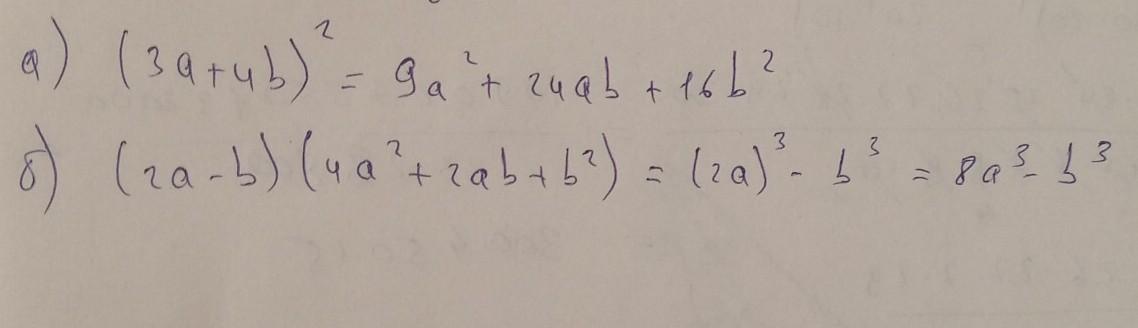 а) (3a+4b)² = 9a² + 24ab + 16b²
б) (2a-b)(4a²+2ab+b²) = (2a)³ - b³ = 8a³ - b³